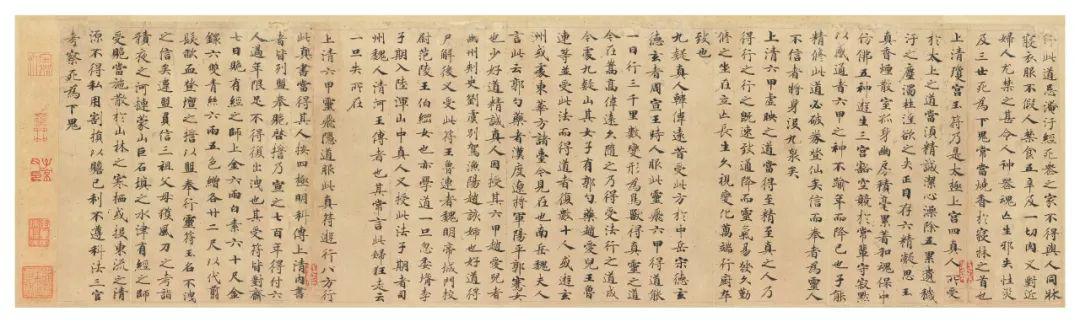 行此道忌淹汙經死喪之家不得與人同牀
寢衣服不假人禁食五辛及一切肉又對近
婦人尤禁之甚令人神喪魂亡生邪失性災
及三世死為下鬼常當燒香於寢牀之首也
上清瓊宮玉符乃是太極上宮四真人所受
於太上之道當須精誠潔心澡除五累遺穢
汙之塵濁杜淫欲之失正目存六精凝思玉
真香煙散室孤身幽房積毫累著和魂保中
仿佛五神遊生三宮豁空競於常輩守寂默
以感通者六甲之神不踰年而降已也子能
精修此道必破券登仙矣信而奉者為靈人
不信者將身沒九泉矣
上清六甲虛映之道當得至精至真之人乃
得行之行之既速致通降而靈氣易發久勤
修之坐在立亡長生久視變化萬端行廚卒
致也
九疑真人韓偉遠昔受此方於中岳宗德玄
德玄者周宣王時人服此靈飛六甲得道能
一日行三千里數變形為鳥獸得真靈之道
今在嵩高偉遠久隨之乃得受法行之道成
今處九疑山其女子有郭勺藥趙愛兒王魯
連等並受此法而得道者復數十人或遊玄
州或處東華方諸臺今見在也南岳魏夫人
言此云郭勺藥者漢度遼將軍陽平郭騫女
也少好道精誠真人因授其六甲趙愛兒者
幽州刺史劉虞別駕漁陽趙該姊也好道得
尸解後又受此符王魯連者魏明帝城門校
尉范陵王伯綱女也亦學道一旦忽委婿李
子期入陸渾山中真人又授此法子期者司
州魏人清河王傳者也其常言此婦狂走云
一旦失所在
上清六甲靈飛隱道服此真符遊行八方行
此真書當得其人按四極明科傳上清內書
者皆列盟奉贶啟誓乃宣之七百年得付六
人過年限足不得復出泄也其受符皆對齋
七日贶有經之師上金六兩白素六十尺金
鐶六雙青絲六兩五色繒各廿二尺以代翦
髮歃血登壇之誓以盟奉行靈符玉名不泄
之信矣違盟負信三祖父母獲風刀之考詣
積夜之河運蒙山巨石填之水津有經之師
受贶當施散於山林之寒棲或投東流之清
源不得私用割損以贍己利不遵科法三官
考察死為下鬼